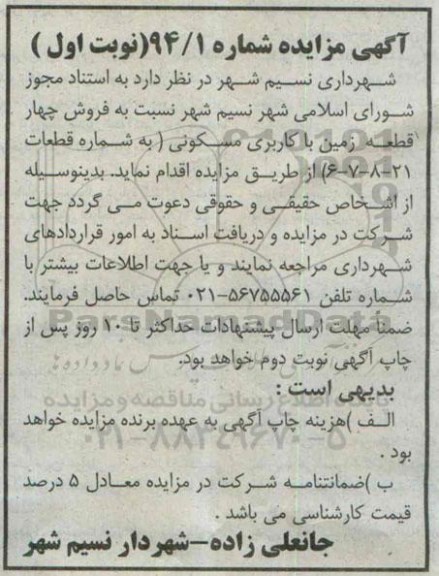 آگهی مزایده شماره ۹۴/۱(نوبت اول )
شهرداری نسیم شهر در نظر دارد به استناد مجوز
شورای اسلامی شهر نسیم شهر نسبت به فروش چهار
قطعه زمین با کاربری مسکونی ( به شماره قطعات
۲۱-۸-۷-۶) از طریق مزایده اقدام نماید. بدینوسیله
از اشخاص حقیقی و حقوقی دعوت می گردد جهت
شرکت در مزایده و دریافت اسناد به امور قراردادهای
شهرداری مراجعه نمایند و یا جهت اطلاعات بیشتر با
شماره تلفن ۵۶۷۵۵۵۶۱-۰۲۱ تماس حاصل فرمایند.
ضمنا مهلت ارسال پیشنهادات حداکثر تا ۱۰ روز پس از
چاپ آگهی نوبت دوم خواهد بود.
بدیهی است :
الف )هزینه چاپ آگهی به عهده برنده مزایده خواهد
بود .
ب )ضمانتنامه شرکت در مزایده معادل ۵ درصد
قیمت کارشناسی می باشد .
جانعلی زاده-شهردار نسیم شهر
ParsNamadData
پایگاه اطلاع رسانی مناقصه و مزایده
۰۲۱-۸۸۳۴۹۶۷۰-۵